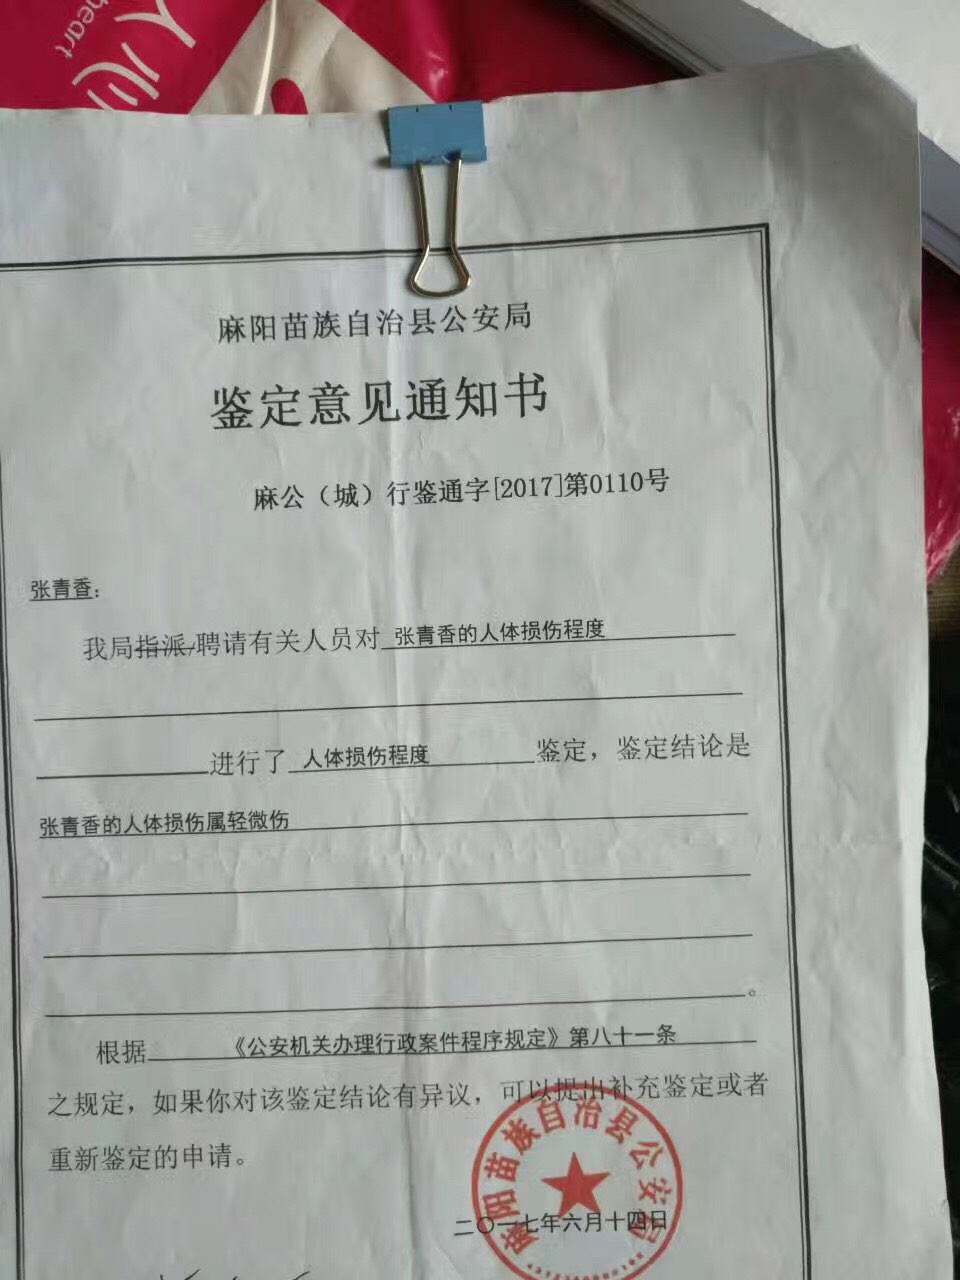 人心
heart
麻阳苗族自治县公安局
鉴定意见通知书
麻公（城）行鉴通字[2017]第0110号
张青香：
我局指派/聘请有关人员对 张青香的人体损伤程度
进行了 人体损伤程度 鉴定，鉴定结论是
张青香的人体损伤属轻微伤
。
根据 《公安机关办理行政案件程序规定》第八十一条
之规定，如果你对该鉴定结论有异议，可以提出补充鉴定或者
重新鉴定的申请。
麻阳苗族自治县公安局
二〇一七年六月十四日